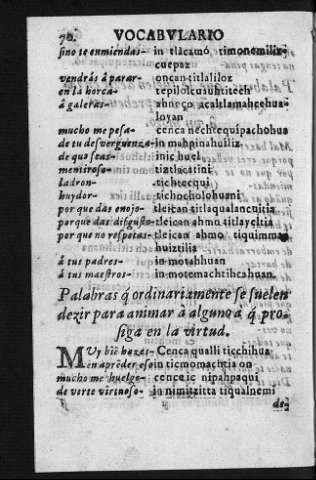 70. VOCABVLARIO
sino te enmiendas- in tlacamó, timonemiliz-
cuepaz
vendrás á parar- oncan titlaliloz
en la horca- tepilolcuauhtitech
á galeras- acaltlamaceehua-
loyan
mucho me pesa- cenca nechtequipachohua
de tu desverguenza- in mahpinahuiliz
de quo seas- inic huel
mentiroso- tiztlacatini
ladron- tichtecqui
huydor- tichocholohuani
por que das enojo- tleican titlaqualancuitia
porque das disgusto- tleican ahmo titlayeltia
por que no respetas- tleican ahmo tiquimma
huiztilia
á tus padres- in motahhuan
á tus maestros- in motemachticahuan.
Palabras q̃ ordinariamente se suelen
dezir para animar à alguno a q̃ pro-
siga en la virtud.
MUy biẽ hazes- Cenca qualli ticchihua
en aprẽder eso in ticmomachtia on
mucho me huelgo- cenca ic nipahpaqui
de verte virtuoso- in nimitzitta tiqualnemi